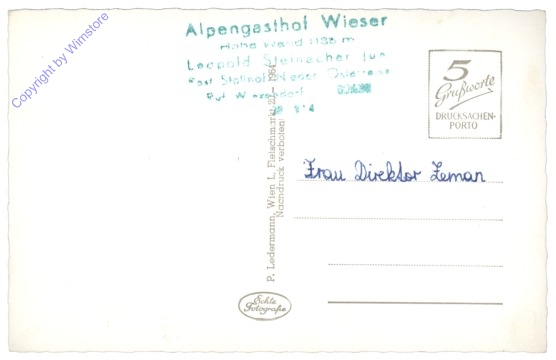 Copyright by Wimstore
Alpengasthof Wieser
Hohe Wand 1135 m
Leopold Steinacher jun.
Post Stollhof Nieder Österreich
Ruf W
814
5
Grußworte
DRUCKSACHEN-
PORTO
Frau Direktor Zeman
P. Ledermann, Wien I., Fleischmarkt 20 — 1964
Nachdruck verboten!
Echte
Fotografie